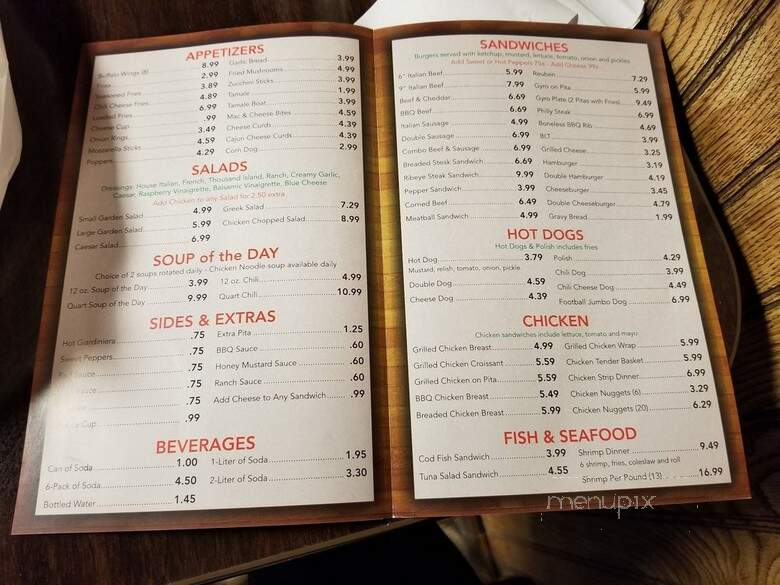 APPETIZERS
Buffalo Wings (8) 8.99
Fries 2.99
Seasoned Fries 3.89
Chili Cheese Fries 4.89
Loaded Fries 6.99
Cheese Cup .99
Onion Rings 3.49
Mozzarella Sticks 4.59
Poppers 4.29
Garlic Bread 3.99
Fried Mushrooms 4.99
Zucchini Sticks 3.99
Tamale 1.99
Tamale Boat 3.99
Mac & Cheese Bites 4.59
Cheese Curds 4.39
Cajun Cheese Curds 4.39
Corn Dog 2.99
SALADS
Dressings: House Italian, French, Thousand Island, Ranch, Creamy Garlic,
Caesar, Raspberry Vinaigrette, Balsamic Vinaigrette, Blue Cheese
Add Chicken to any Salad for 2.50 extra
Small Garden Salad 4.99
Large Garden Salad 5.99
Caesar Salad 6.99
Greek Salad 7.29
Chicken Chopped Salad 8.99
SOUP of the DAY
Choice of 2 soups rotated daily - Chicken Noodle soup available daily
12 oz. Soup of the Day 3.99
Quart Soup of the Day 9.99
12 oz. Chili 4.99
Quart Chili 10.99
SIDES & EXTRAS
Hot Giardiniera .75
Sweet Peppers .75
.75
.75
.75
Cup .99
Extra Pita 1.25
BBQ Sauce .60
Honey Mustard Sauce .60
Ranch Sauce .60
Add Cheese to Any Sandwich .99
BEVERAGES
Can of Soda 1.00
6-Pack of Soda 4.50
Bottled Water 1.45
1-Liter of Soda 1.95
2-Liter of Soda 3.30
SANDWICHES
Burgers served with ketchup, mustard, lettuce, tomato, onion and pickles
Add Sweet or Hot Peppers 75¢ - Add Cheese 99¢
6" Italian Beef 5.99
9" Italian Beef 7.99
Beef & Cheddar 6.69
BBQ Beef 6.69
Italian Sausage 4.99
Double Sausage 6.99
Combo Beef & Sausage 6.99
Breaded Steak Sandwich 6.69
Ribeye Steak Sandwich 9.99
Pepper Sandwich 3.99
Corned Beef 6.49
Meatball Sandwich 4.99
Reuben 7.29
Gyro on Pita 5.99
Gyro Plate (2 Pitas with Fries) 9.49
Philly Steak 6.99
Boneless BBQ Rib 4.69
BLT 3.99
Grilled Cheese 3.25
Hamburger 3.19
Double Hamburger 4.19
Cheeseburger 3.45
Double Cheeseburger 4.79
Gravy Bread 1.99
HOT DOGS
Hot Dogs & Polish includes fries
Hot Dog 3.79
Mustard, relish, tomato, onion, pickle
Double Dog 4.59
Cheese Dog 4.39
Polish 4.29
Chili Dog 3.99
Chili Cheese Dog 4.49
Football Jumbo Dog 6.99
CHICKEN
Chicken sandwiches include lettuce, tomato and mayo
Grilled Chicken Breast 4.99
Grilled Chicken Croissant 5.59
Grilled Chicken on Pita 5.59
BBQ Chicken Breast 5.49
Breaded Chicken Breast 5.99
Grilled Chicken Wrap 5.99
Chicken Tender Basket 5.99
Chicken Strip Dinner 6.99
Chicken Nuggets (6) 3.29
Chicken Nuggets (20) 6.29
FISH & SEAFOOD
Cod Fish Sandwich 3.99
Tuna Salad Sandwich 4.55
Shrimp Dinner 9.49
6 shrimp, fries, coleslaw and roll
Shrimp Per Pound (13) 16.99
menupix